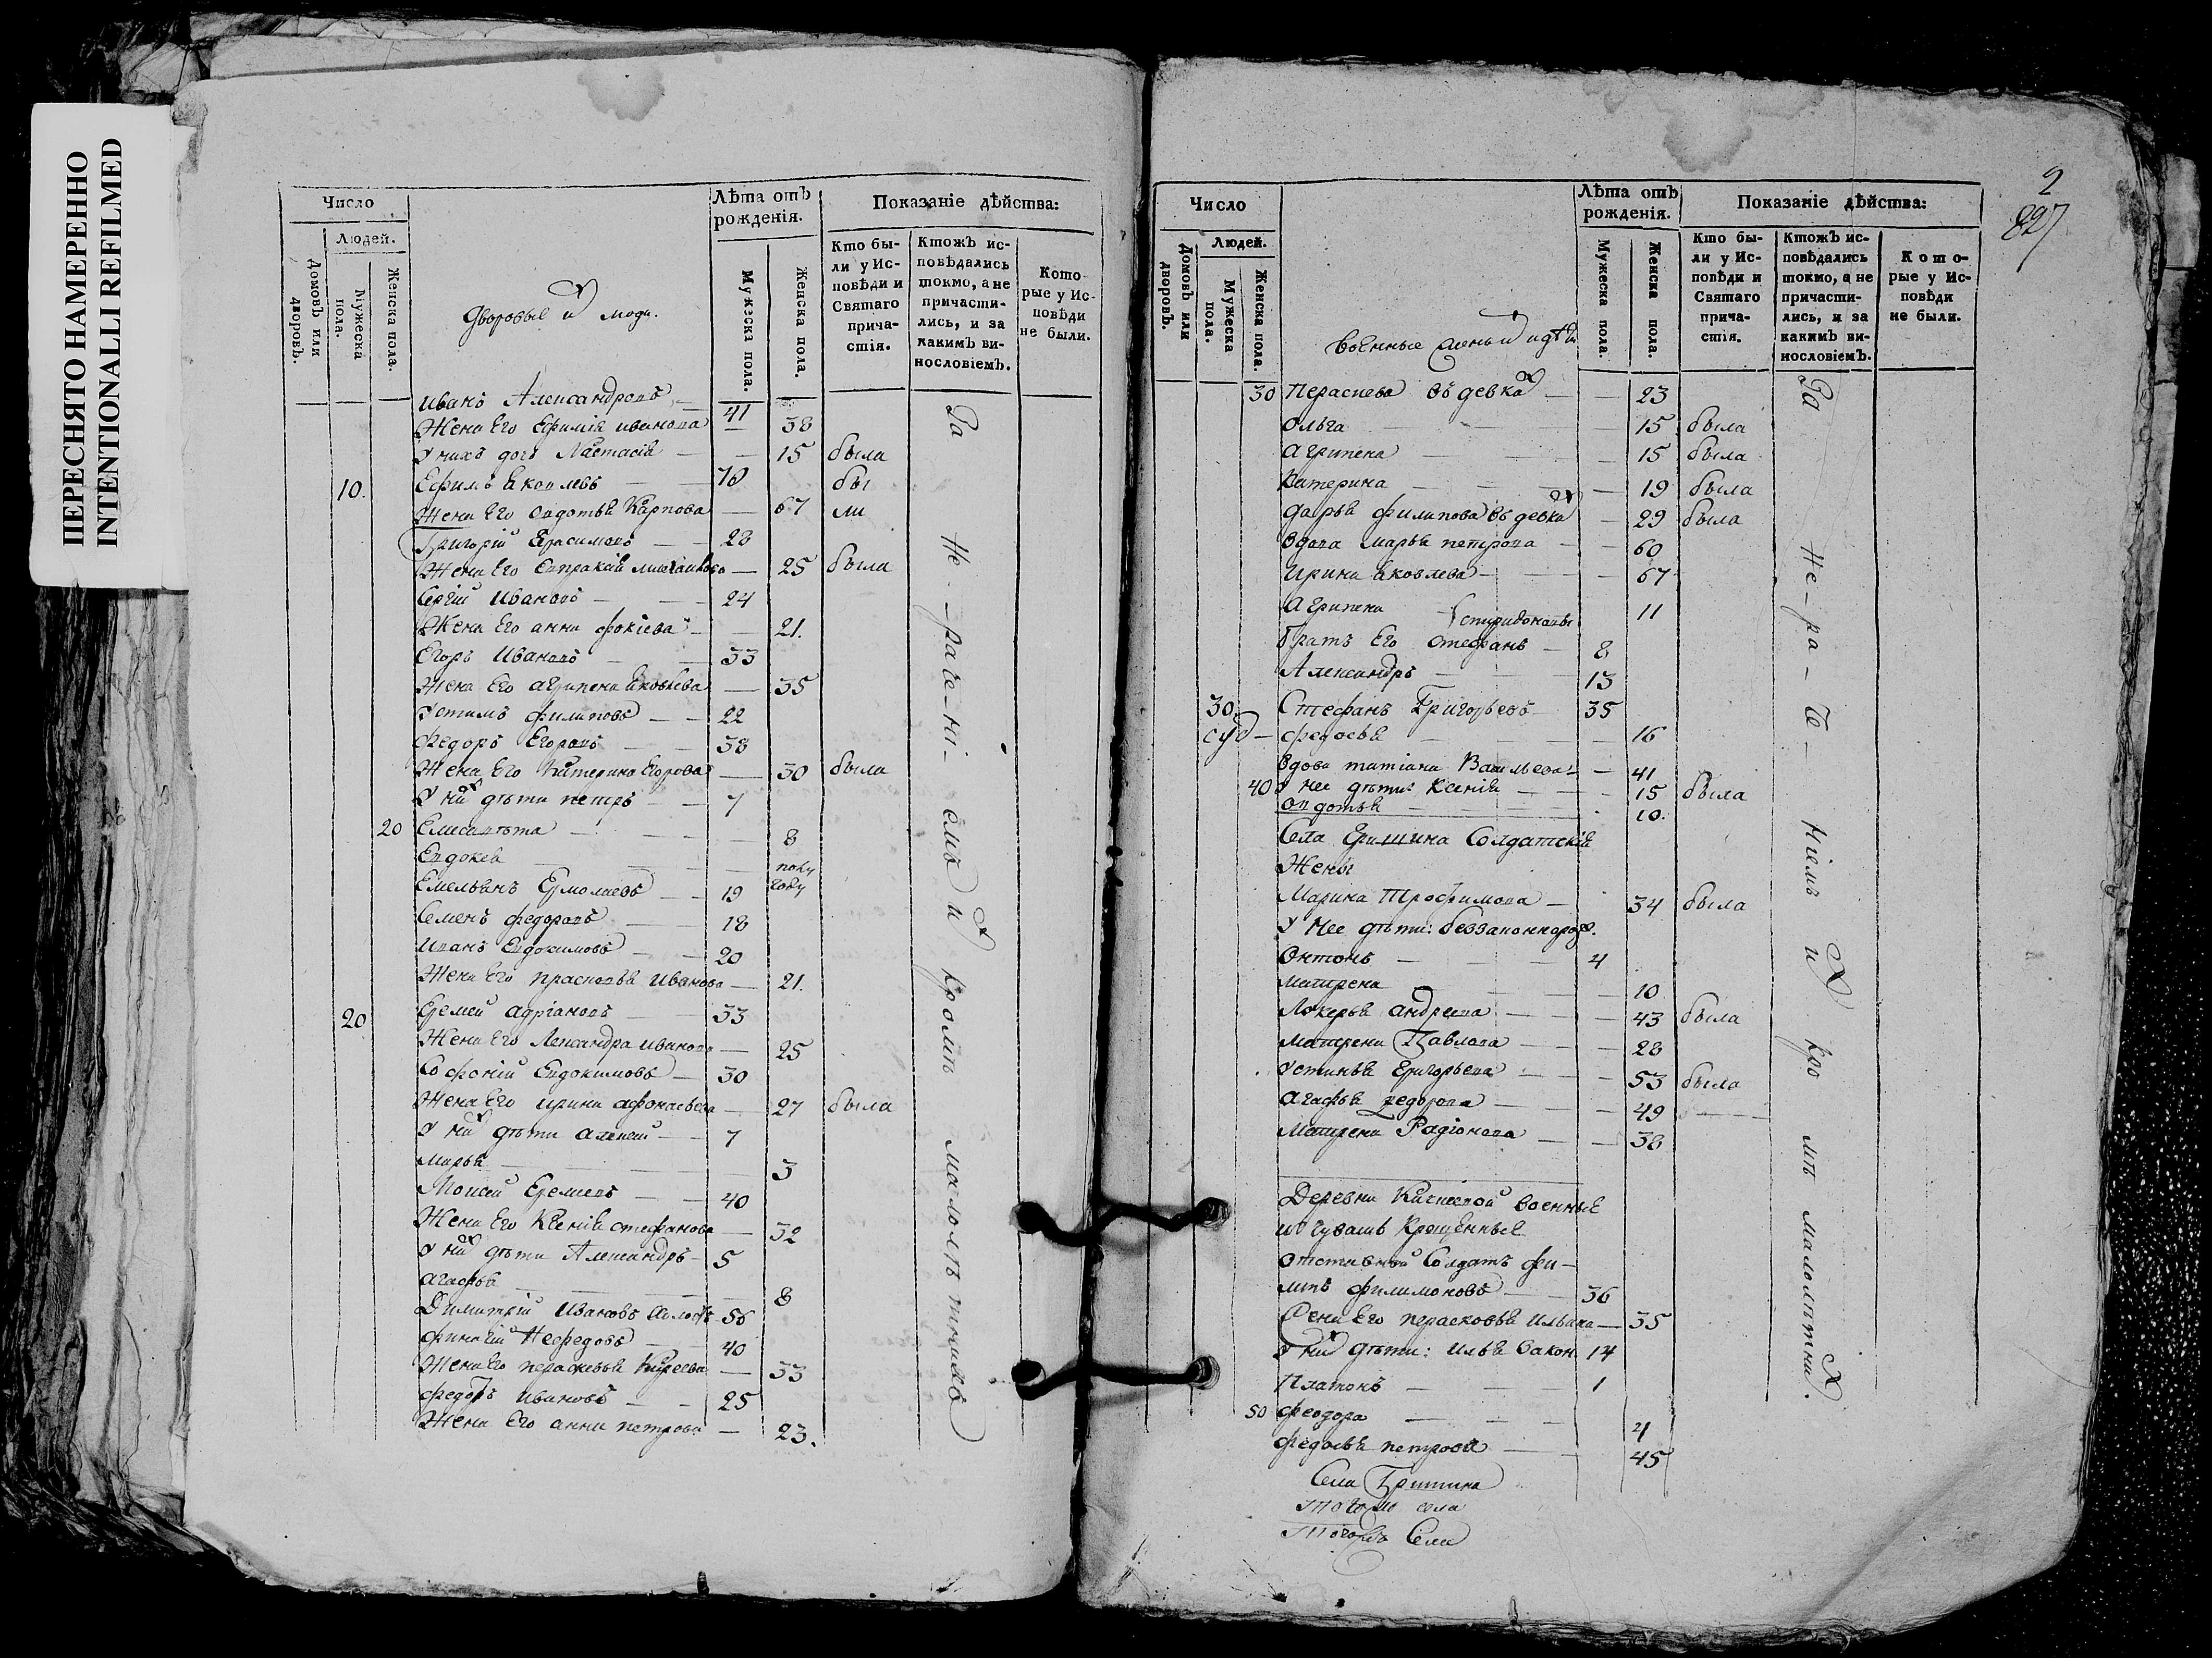 ПЕРЕСНЯТО НАМЕРЕННО
INTENTIONALLI REFILMED
Число
Людей.
Домовъ или дворовъ.
Мужеска пола.
Женска пола.
Дворовые люди.
Лѣта отъ рожденія.
Мужеска пола.
Женска пола.
Показаніе дѣйства:
Кто бы-
ли у Ис-
повѣди и
Святаго
прича-
стія.
Ктожъ ис-
повѣдались
токмо, а не
причасти-
лись, и за
какимъ ви-
нословіемъ.
Кото-
рые у Ис-
повѣди
не были.
Иванъ Александровъ — 41
Жена Его Ефимія иванова — 38
У нихъ дочь Настасія — 15 была
10. Ефимъ Яковлевъ — 70 бы
Жена Его Овдотья Карпова — 67 ли
Григорій Герасимовъ — 28
Жена Его Михаилова — 25 была
Сергій Ивановъ — 24
Жена Его анна фокіева — 21.
Егоръ Ивановъ — 33
Жена Его агрипена Яковлева — 35
Устимъ филиповъ — 22
федоръ Егоровъ — 38
Жена Его Катерина Егорова — 30 была
У них дѣти петръ — 7
20 Елисавѣта — 8
Евдокея — полу году
Емельянъ Ермолаевъ — 19
Семенъ федоровъ — 18
Иванъ Евдокимовъ — 20
Жена Его прасковья Иванова — 21.
20 Еремей адріановъ — 33
Жена Его Лександра иванова — 25
Софоній Евдокимовъ — 30
Жена Его ирина афонасьева — 27 была
У них дѣти алексей — 7
марья — 3
Моисей — 40
Жена Его Ксенія стефанова — 32
У них дѣти Александръ — 5
агафья — 8
Димитрій Ивановъ — 56
Нефедовъ — 40
Жена Его парасковья — 33
федоръ Ивановъ — 25
Жена Его анна петрова — 23.
За не-раче-ні-емъ и кромѣ малолѣтнихъ
2
827
Число
Людей.
Домовъ или дворовъ.
Мужеска пола.
Женска пола.
Военные жены и дѣти
Лѣта отъ рожденія.
Мужеска пола.
Женска пола.
Показаніе дѣйства:
Кто бы-
ли у Ис-
повѣди и
Святаго
прича-
стія.
Ктожъ ис-
повѣдались
токмо, а не
причасти-
лись, и за
какимъ ви-
нословіемъ.
Кото-
рые у Ис-
повѣди
не были.
30 въ девках — 23
Ольга — 15 была
агрипена — 15 была
Катерина — 19 была
дарья филипова въ девках — 29 была
вдова марья петрова — 60
ирина Яковлева — 67
агрипена спиридонова 11
братъ Его стефанъ — 8
Александръ — 13
30 Стефанъ Григорьевъ — 35
федосья — 16
вдова татіана Васильева — 41
40 У нее дѣти: Ксенія — 15 была
овдотья — 10.
Села Гришина Солдатскія
Жены
Марина Трофимова — 34 была
У нее дѣти:
Онтонъ — 4
матрена — 10
Лукерья андреева — 43 была
матрена Павлова — 28
Устинья Григорьева — 53 была
агафья федорова — 49
Матрена Радіонова — 38
Деревни военные
из чувашъ Крещенные
отставной Солдатъ фи-
липъ филимоновъ — 36
Жена Его парасковья — 35
У них дѣти: илья 14
Платонъ — 1
50 феодора — 4
федосья петрова — 45
Села Гришина
того же села
тогожъ Села
За не-ра-че-ніемъ и кромѣ малолѣтних.